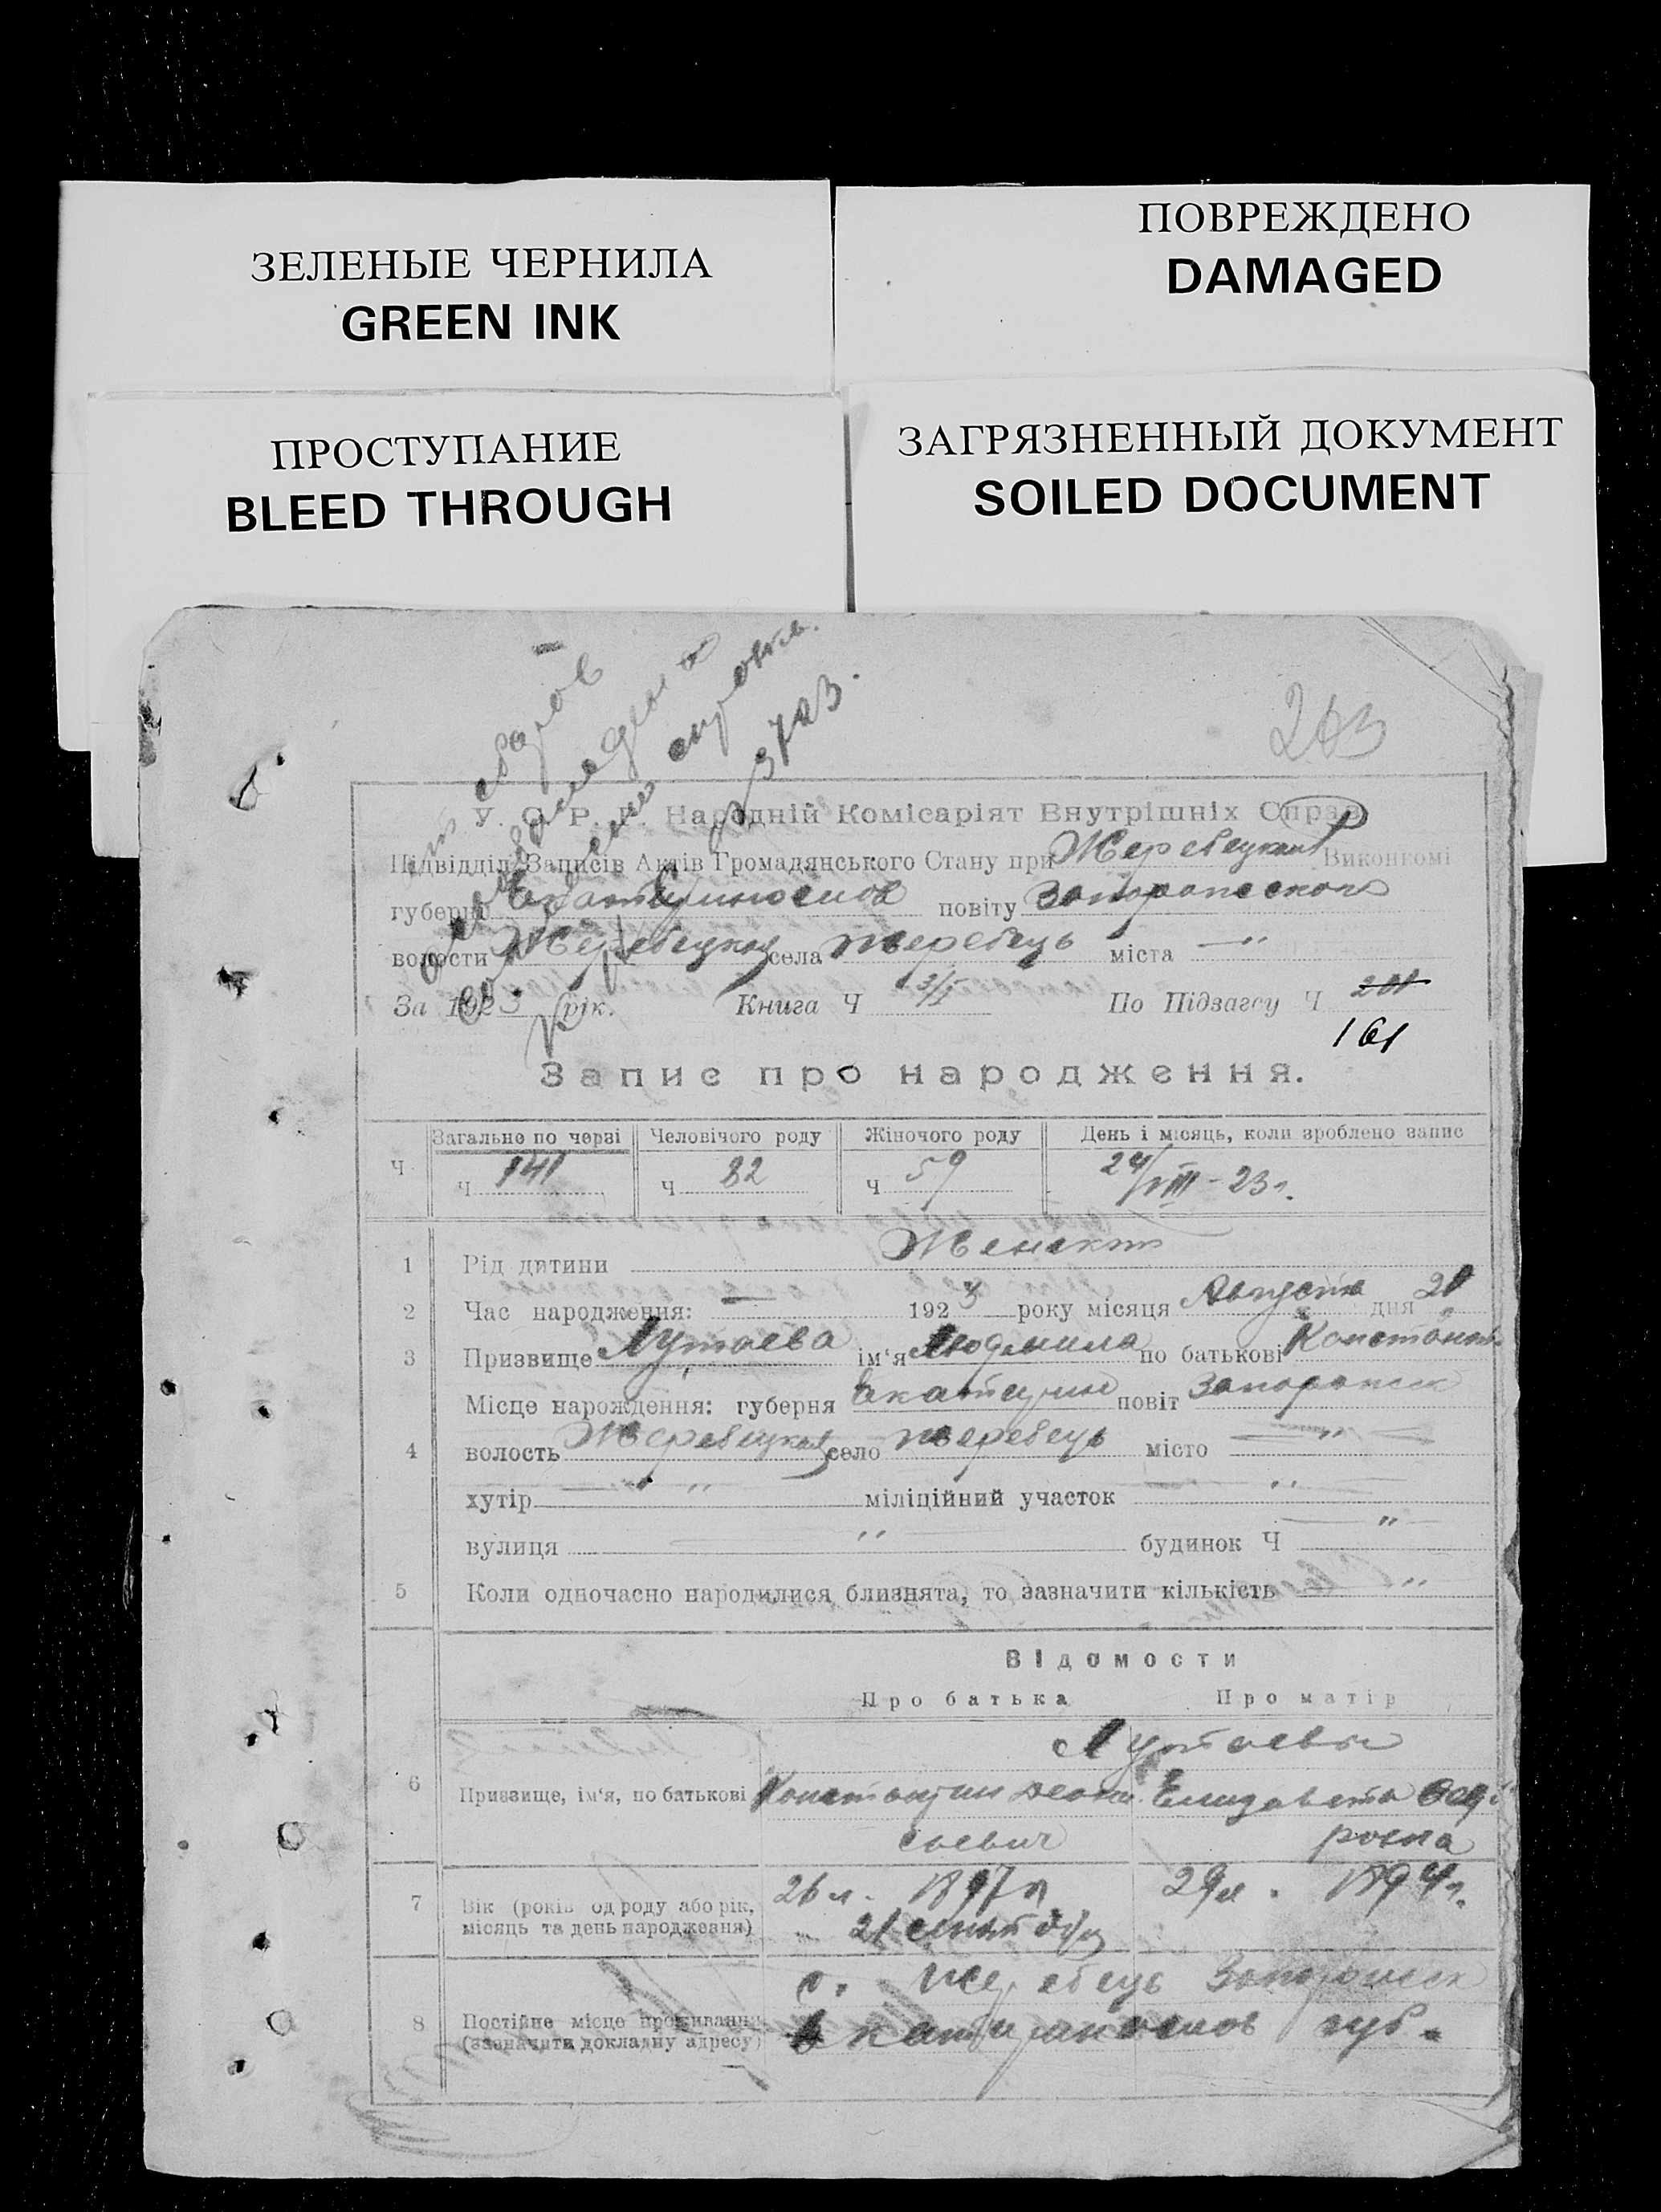 ЗЕЛЕНЫЕ ЧЕРНИЛА
GREEN INK
ПОВРЕЖДЕНО
DAMAGED
ПРОСТУПАНИЕ
BLEED THROUGH
ЗАГРЯЗНЕННЫЙ ДОКУМЕНТ
SOILED DOCUMENT
263
У. С. Р. Р. Народній Комісаріят Внутрішніх Справ
Підвідділ Записів Актів Громадянського Стану при Жеребецком Виконкомі
губерні Екатеринослов повіту Запорожского
волости Жеребецкая села Жеребець міста — " —
За 1923 рік. Книга Ч 3/I По Підзагсу Ч
161
Запис про народження.
Загальне по черзі Человічого роду Жіночого роду День і місяць, коли зроблено запис
Ч Ч 141 Ч 82 Ч 59 24/VIII - 23 г.
1 Рід дитини Женский
2 Час народження: — 1923 року місяця Августа дня 21
3 Призвище Лутаева ім'я Людмила по батькові Констонт.
Місце народження: губерня Екатерин повіт Запорожск
4 волость Жеребецкая село Жеребець місто — " —
хутір — " — міліційний участок — " —
вулиця — " — будинок Ч — " —
5 Коли одночасно народилися близнята, то зазначити кількість — " —
Відомости
Про батька Про матір
Лутаевы
6 Призвище, ім'я, по батькові Константин Елизавета Фед
сьевич ровна
7 Вік (років од роду або рік, 26 л. 1897 г 29 л. 1894 г.
місяць та день народження) 21 сентября
с. Жеребець Запорожск
8 Постійне місце проживання
(зазначити докладну адресу) Екатеринослов губ.